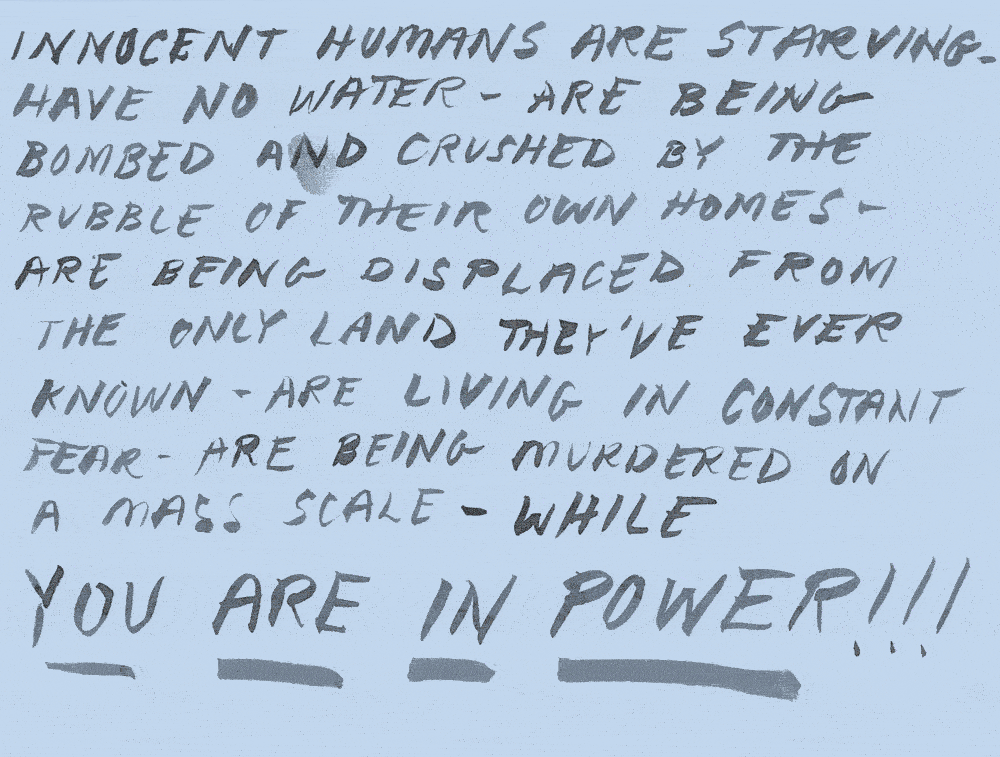 INNOCENT HUMANS ARE STARVING-
HAVE NO WATER - ARE BEING
BOMBED AND CRUSHED BY THE
RUBBLE OF THEIR OWN HOMES -
ARE BEING DISPLACED FROM
THE ONLY LAND THEY'VE EVER
KNOWN - ARE LIVING IN CONSTANT
FEAR - ARE BEING MURDERED ON
A MASS SCALE - WHILE
YOU ARE IN POWER!!!